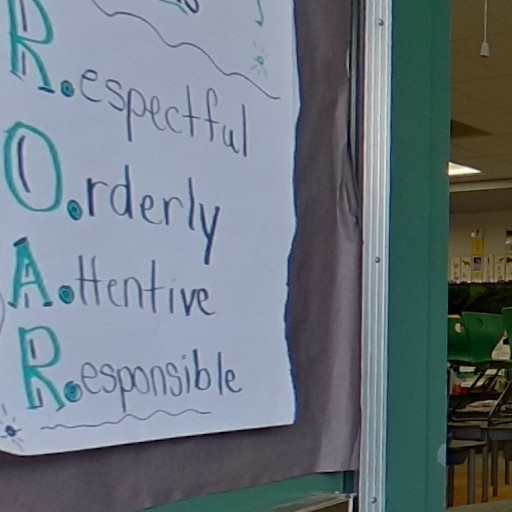 R.espectful
O.rderly
A.ttentive
R.esponsible